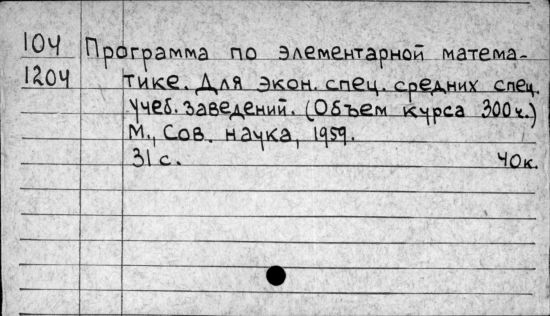 104 Программа по элементарной матема-
1204 тике. Для экон. спец. средних спец.
учеб. заведений. (Объем курса 300 ч.)
М., Сов. наука, 1959.
31 с. 40к.